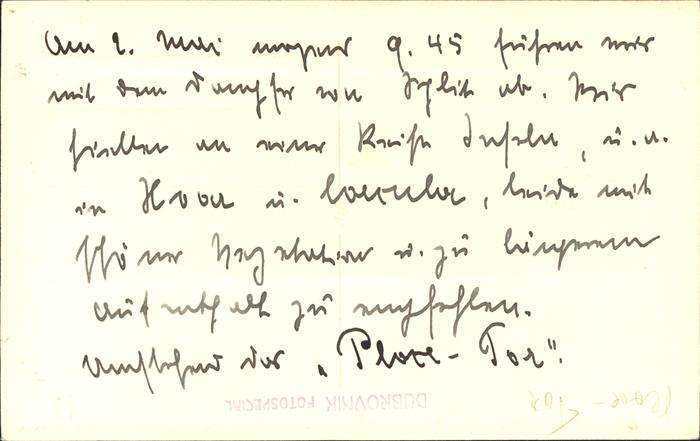 Am 2. Mai morgens 9.45 fuhren wir
mit dem Dampfer von Split ab. Wir
hielten an einer Reihe Inseln, u. a.
in Hvar u. Corcula, beide mit
schöner Vegetation u. zu längerem
Aufenthalt zu empfehlen.
Umstehend das „Ploce-Tor“.
DUBROVNIK FOTOSPECIAL
Ploce-Tor